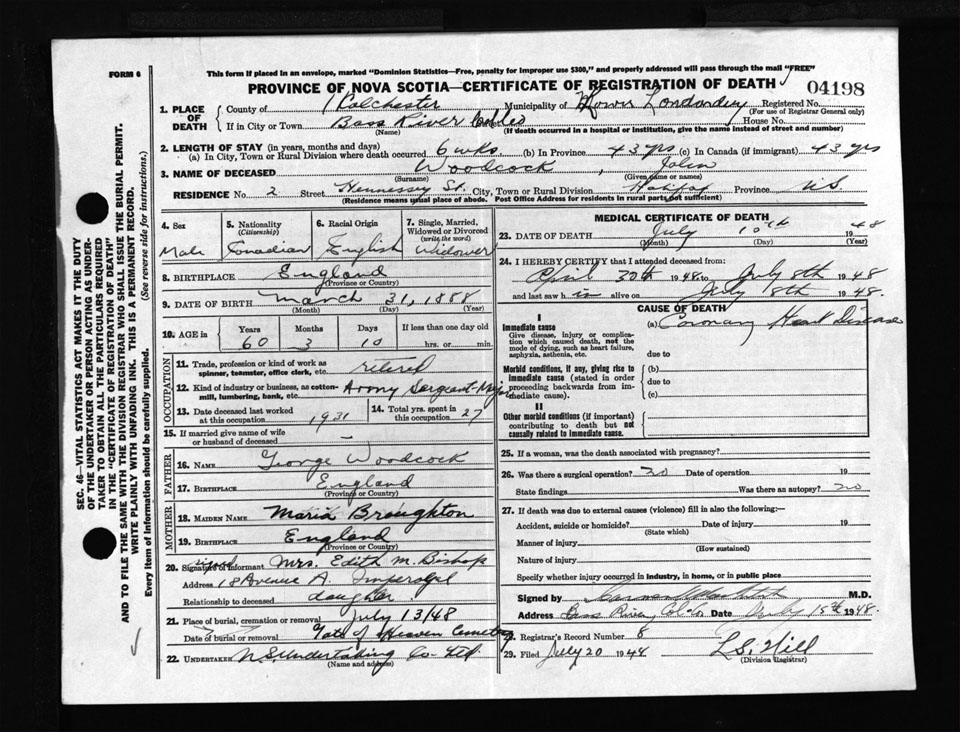 FORM 6
This form if placed in an envelope, marked "Dominion Statistics—Free, penalty for improper use $300," and properly addressed will pass through the mail "FREE"
PROVINCE OF NOVA SCOTIA—CERTIFICATE OF REGISTRATION OF DEATH
04198
1. PLACE OF DEATH
County of Colchester Municipality of Lower Londonderry Registered No.
(For use of Registrar General only)
If in City or Town Bass River House No.
(Name) (If death occurred in a hospital or institution, give the name instead of street and number)
2. LENGTH OF STAY (in years, months and days)
(a) In City, Town or Rural Division where death occurred 6 wks. (b) In Province 43 yrs (c) In Canada (if immigrant) 43 yrs
3. NAME OF DECEASED Woodcock, John
(Surname) (Given name or names)
RESIDENCE No. 2 Street Hennessy St. City, Town or Rural Division Halifax Province N.S.
(Residence means usual place of abode. Post Office Address for residents in rural parts not sufficient)
4. Sex
Male
5. Nationality
(Citizenship)
Canadian
6. Racial Origin
English
7. Single, Married, Widowed or Divorced
(write the word)
Widower
8. BIRTHPLACE England
(Province or Country)
9. DATE OF BIRTH March 31, 1888
(Month) (Day) (Year)
10. AGE in Years Months Days If less than one day old
60 3 10 hrs. or min.
OCCUPATION
11. Trade, profession or kind of work as spinner, teamster, office clerk, etc. retired
12. Kind of industry or business, as cotton-mill, lumbering, bank, etc. Army Sergeant-Major
13. Date deceased last worked at this occupation 1931
14. Total yrs. spent in this occupation 27
15. If married give name of wife or husband of deceased —
FATHER
16. NAME George Woodcock
17. BIRTHPLACE England
(Province or Country)
MOTHER
18. MAIDEN NAME Maria Broughton
19. BIRTHPLACE England
(Province or Country)
20. Signature of informant Mrs. Edith M. Bishop
Address 18 Avenue A. Imperoyal
Relationship to deceased daughter
21. Place of burial, cremation or removal July 13/48
Date of burial or removal Gate of Heaven Cemetery
22. UNDERTAKER N.S. Undertaking Co. Ltd
(Name and address)
MEDICAL CERTIFICATE OF DEATH
23. DATE OF DEATH July 10th 1948
(Month) (Day) (Year)
24. I HEREBY CERTIFY that I attended deceased from:
April 30th 1948 to July 8th 1948
and last saw h is alive on July 8th 1948.
CAUSE OF DEATH
I
Immediate cause
Give disease, injury or complication which caused death, not the mode of dying, such as heart failure, asphyxia, asthenia, etc.
(a) Coronary Heart Disease
due to
Morbid conditions, if any, giving rise to immediate cause (stated in order proceeding backwards from immediate cause).
(b)
due to
(c)
II
Other morbid conditions (if important) contributing to death but not causally related to immediate cause.
25. If a woman, was the death associated with pregnancy?
26. Was there a surgical operation? no Date of operation 19
State findings Was there an autopsy? no
27. If death was due to external causes (violence) fill in also the following:—
Accident, suicide or homicide? Date of injury 19
(State which)
Manner of injury
(How sustained)
Nature of injury
Specify whether injury occurred in industry, in home, or in public place
Signed by M.D.
Address Bass River, Col. Co Date July 15th 1948.
28. Registrar's Record Number 8
29. Filed July 20 1948 L.S. Hill
(Division Registrar)
SEC. 46—VITAL STATISTICS ACT MAKES IT THE DUTY
OF THE UNDERTAKER OR PERSON ACTING AS UNDER-
TAKER TO OBTAIN ALL THE PARTICULARS REQUIRED
IN THE "CERTIFICATE OF REGISTRATION OF DEATH"
AND TO FILE THE SAME WITH THE DIVISION REGISTRAR WHO SHALL ISSUE THE BURIAL PERMIT.
WRITE PLAINLY WITH UNFADING INK. THIS IS A PERMANENT RECORD.
Every item of information should be carefully supplied. (See reverse side for instructions.)